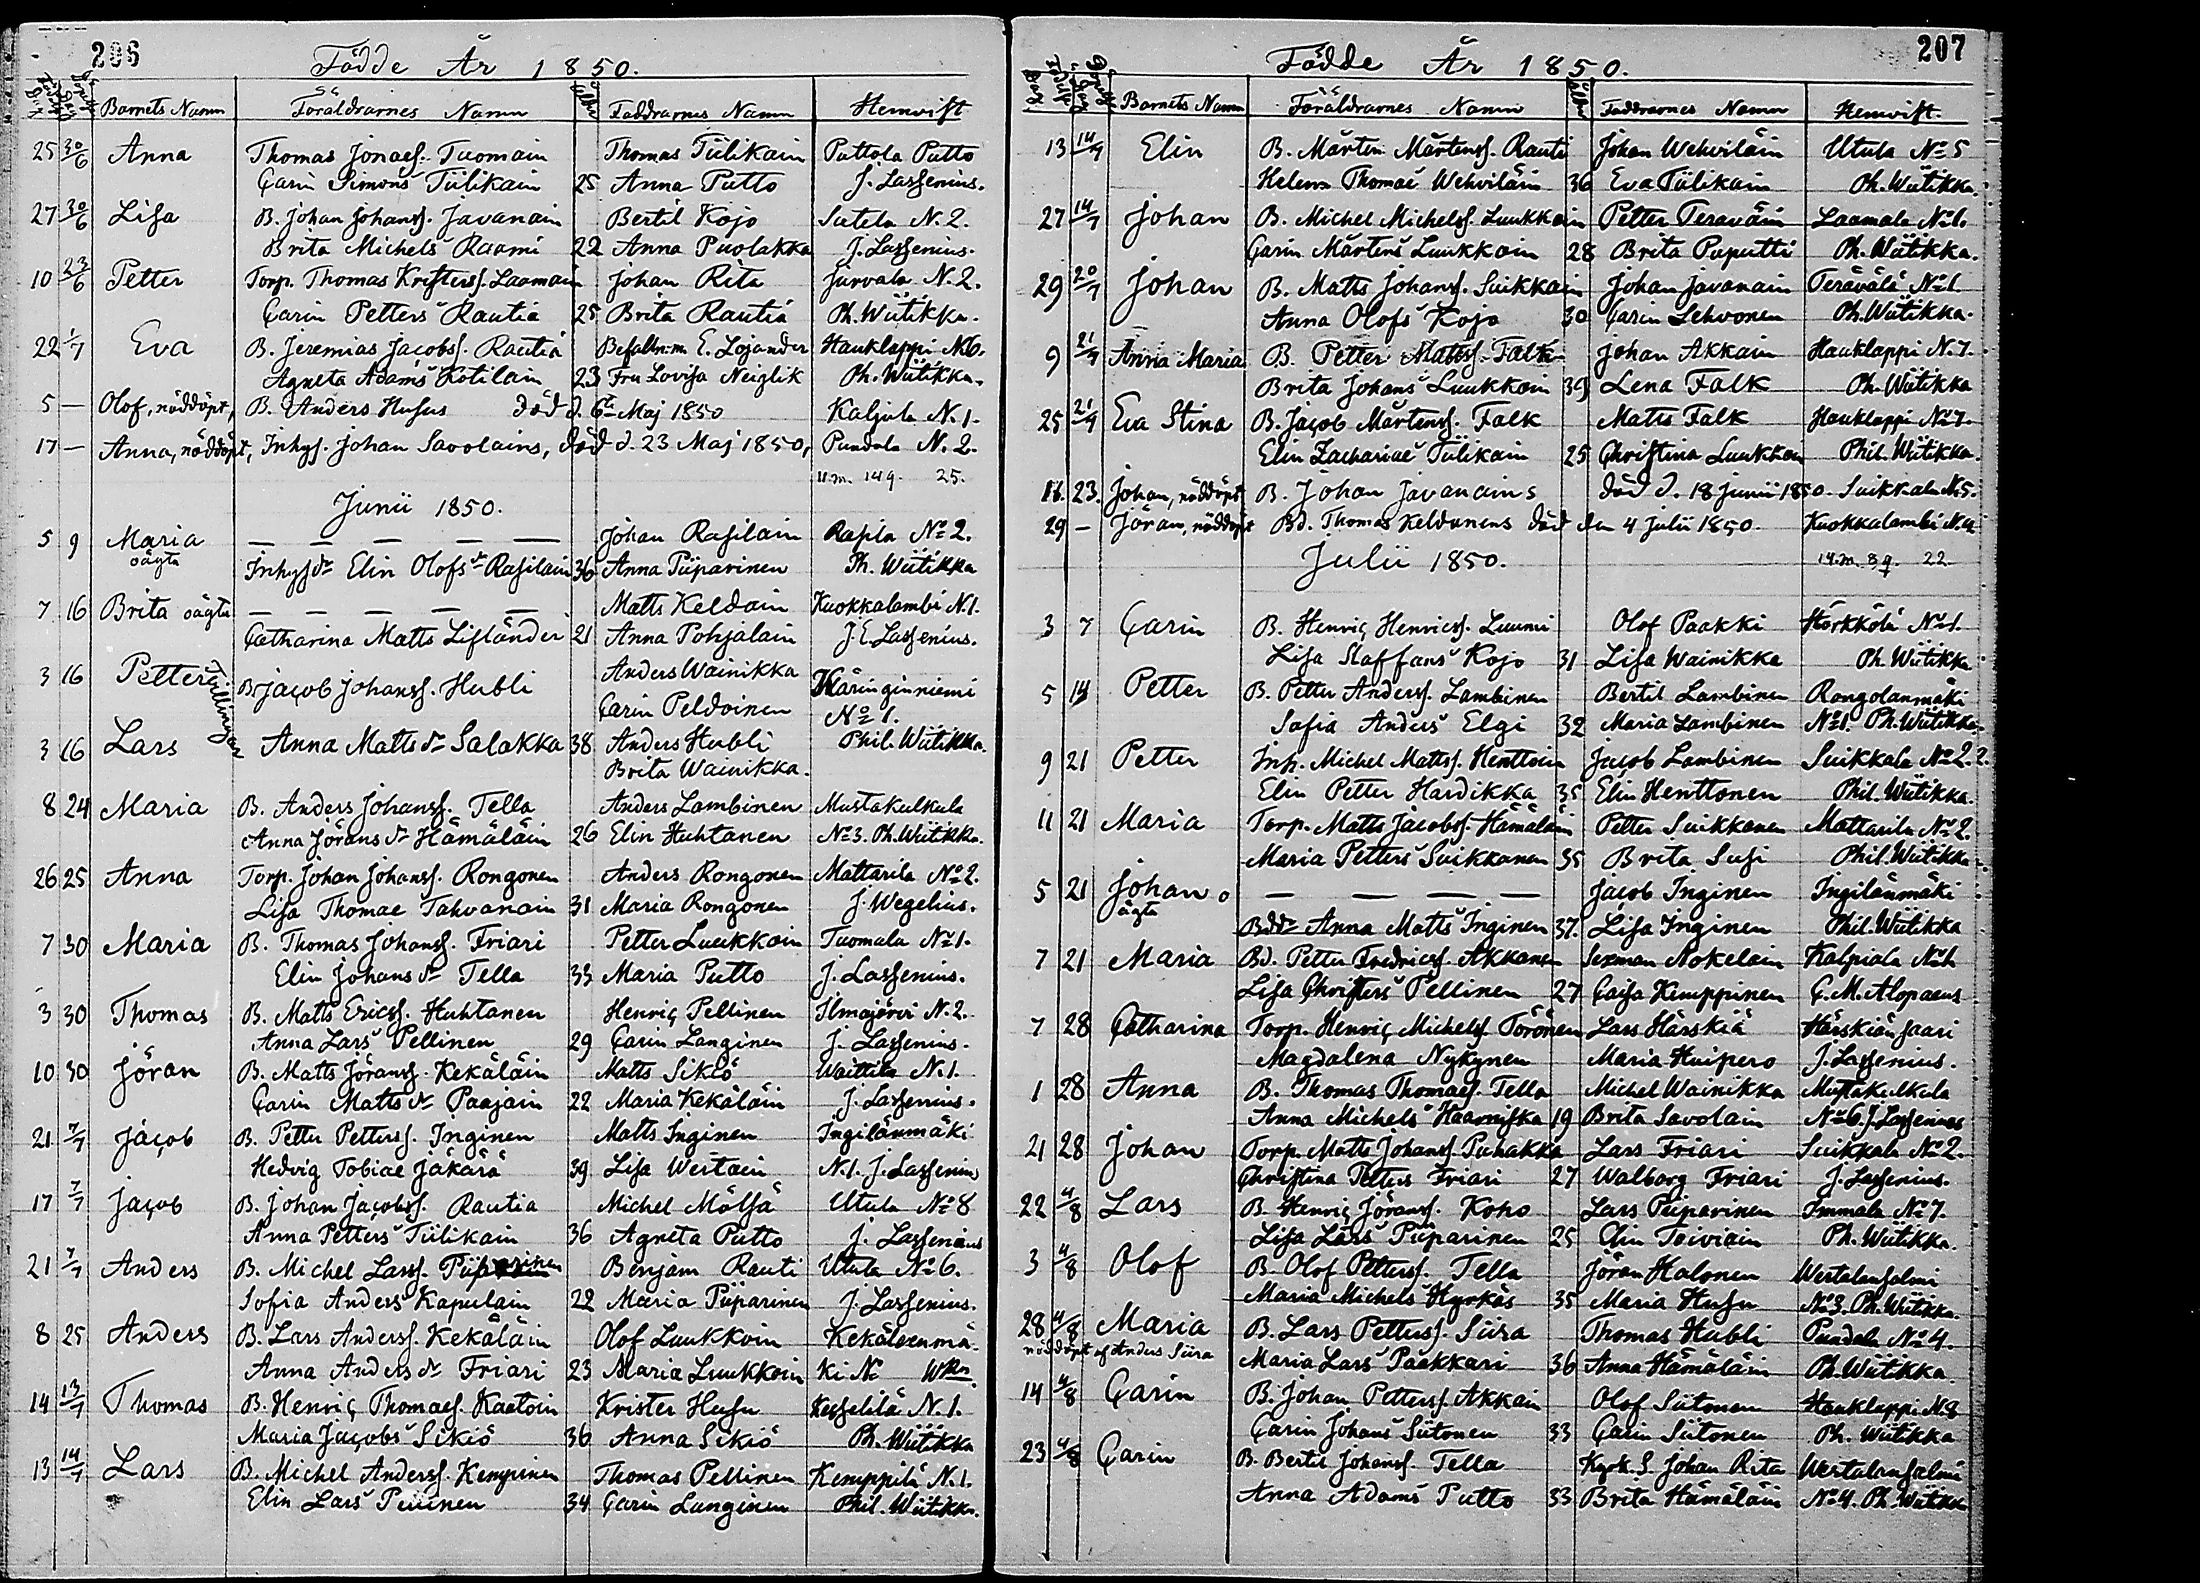 206
Födde År 1850.
Barnets Namn Föräldrarnes Namn Ålder Faddrarnes Namn Hemvist
25 30/6 Anna Thomas Jonaes. Tuomain Thomas Tiilikain Puttola Putto
Carin Simons Tiilikain 25 Anna Putto J. Lassenius.
27 30/6 Lisa B. Johan Johanss. Javanain Bertil Kojo Sutela N. 2.
Brita Michels Raami 22 Anna Puolakka J. Lassenius.
10 23/6 Petter Torp. Thomas Kristerss. Laamain Johan Rita Jurvala N. 2.
Carin Petters Rautia 25 Brita Rautia Ph. Wiitikka.
22 1/7 Eva B. Jeremias Jacobss. Rautia Befalln:m. E. Lojander Hauklappi N:6.
Agneta Adams Kotilain 23 Fru Lovisa Neiglik Ph. Wiitikka.
5 — Olof, nöddöpt, B. Anders Husus död d. 6te Maj 1850 Kaljula N. 1.
17 — Anna, nöddöpt, Inhys. Johan Savolains, död d. 23 Maj 1850, Pundala N. 2.
11.m. 14 q. 25.
Junii 1850.
5 9 Maria — — — — — Johan Rasilain Rasila No 2.
oägta Inhysdr Elin Olofsdr Rasilain 36 Anna Piiparinen Ph. Wiitikka
7 16 Brita oägta — — — — — Matts Keldain Kuokkalambi N. 1.
Catharina Matts Lifländer 21 Anna Pohjalain J. E. Lassenius.
3 16 Petter Tvillingar B. Jacob Johanss. Hubli Anders Wainikka Käringinniemi
Carin Peldoinen No 1.
3 16 Lars Anna Matts dr Salakka 38 Anders Hubli Phil. Wiitikka.
Brita Wainikka.
8 24 Maria B. Anders Johanss. Tella Anders Lambinen Mustakulkula
Anna Jörans dr Hämäläin 26 Elin Huhtanen No 3. Ph. Wiitikka.
26 25 Anna Torp. Johan Johanss. Rongonen Anders Rongonen Mattarila No 2.
Lisa Thomae Tahvanain 31 Maria Rongonen J. Wegelius.
7 30 Maria B. Thomas Johanss. Friari Petter Luukkoin Tuomala No 1.
Elin Johans dr Tella 33 Maria Putto J. Lassenius.
3 30 Thomas B. Matts Ericss. Huhtanen Henric Pellinen Ilmajärvi N. 2.
Anna Lars Pellinen 29 Carin Langinen J. Lassenius.
10 30 Jöran B. Matts Jöranss. Kekäläin Matts Sikiö Waittila N. 1.
Carin Matts dr Paajain 22 Maria Kekäläin J. Lassenius.
21 7/7 Jacob B. Petter Petterss. Inginen Matts Inginen Ingilänmäki
Hedvig Tobiae Jäkärä 39 Lisa Wertain N. 1. J. Lassenius
17 7/7 Jacob B. Johan Jacobss. Rautia Michel Mälsä Utula No 8
Anna Petters Tiilikain 36 Agneta Putto J. Lassenius
21 7/7 Anders B. Michel Larss. Piiparinen Benjam Rauti Utula No 6.
Sofia Anders Kapulain 22 Maria Piiparinen J. Lassenius.
8 25 Anders B. Lars Anderss. Kekäläin Olof Luukkoin Kekäleenmä-
Anna Anders dr Friari 23 Maria Luukkoin ki No Wkn.
14 13/7 Thomas B. Henric Thomaes. Kaatoin Krister Husu Kesselilä N. 1.
Maria Jacobs Sikiö 36 Anna Sikiö Ph. Wiitikka
13 14/7 Lars B. Michel Anderss. Kempinen Thomas Pellinen Kemppilä N. 1.
Elin Lars Pellinen 34 Carin Langinen Phil. Wiitikka.
207
Födde År 1850.
Barnets Namn Föräldrarnes Namn Ålder Faddrarnes Namn Hemvift.
13 14/7 Elin B. Mårten Mårtenss. Rauti Johan Wehviläin Utula No 5
Helena Thomae Wehviläin 36 Eva Tiilikain Ph. Wiitikka.
27 14/7 Johan B. Michel Michelss. Luukkain Petter Teraväin Laamala No 1.
Carin Mårtens Luukkain 28 Brita Puputti Ph. Wiitikka.
29 20/7 Johan B. Matts Johanss. Suikkain Johan Javanain Terävälä No 1.
Anna Olofs Kojo 30 Carin Lehvonen Ph. Wiitikka.
9 21/7 Anna Maria B. Petter Mattss. Falk Johan Akkain Hauklappi N. 7.
Brita Johans Luukkain 39 Lena Falk Ph. Wiitikka
25 21/7 Eva Stina B. Jacob Mårtenss. Falk Matts Falk Hauklappi No 7.
Elin Zachariae Tiilikain 25 Christina Luukkan Phil. Wiitikka.
16. 23. Johan, nöddöpt B. Johan Javanains död d. 18 Junii 1850. Suikkala N. 5.
29 — Jöran, nöddöpt Bd. Thomas Keldunens död den 4 Julii 1850. Kuokkalambi N. 4.
14.m. 8 q. 22.
Julii 1850.
3 7 Carin B. Henric Henricss. Luumi Olof Paakki Härkkölä No 1.
Lisa Staffans Kojo 31 Lisa Wainikka Ph. Wiitikka
5 14 Petter B. Petter Anderss. Lambinen Bertil Lambinen Rongolanmäki
Sofia Anders Elgi 32 Maria Lambinen No 1. Ph. Wiitikka.
9 21 Petter Inh. Michel Mattss. Henttoin Jacob Lambinen Suikkala No 2.
Elin Petter Hardikka 35 Elin Henttonen Phil. Wiitikka.
11 21 Maria Torp. Matts Jacobss. Hämäläin Petter Suikkanen Mattarila No 2.
Maria Petters Suikkanen 35 Brita Susi Phil. Wiitikka
5 21 Johan oägta — — — — Jacob Inginen Ingilänmäki
Bddr Anna Matts Inginen 37. Lisa Inginen Phil. Wiitikka
7 21 Maria Bd. Petter Fredricss. Akkanen Sexman Nokelain Kalpiala No 1.
Lisa Christers Pellinen 27 Caisa Kemppinen C. M. Alopaeus
7 28 Catharina Torp. Henric Michelss. Törönen Lars Härskiä Härskiänsaari
Magdalena Nykynen Maria Huipero J. Lassenius.
1 28 Anna B. Thomas Thomaes. Tella Michel Wainikka Mustakulkula
Anna Michels Haaviska 19 Brita Savolain No 6. J. Lassenius
21 28 Johan Torp. Matts Johanss. Puhakka Lars Friari Suikkala No 2.
Christina Petters Friari 27 Walborg Friari J. Lassenius.
22 4/8 Lars B. Henric Jöranss. Koho Lars Piiparinen Immala No 7.
Lisa Lars Piiparinen 25 Elin Toiviain Ph. Wiitikka.
3 4/8 Olof B. Olof Petterss. Tella Jöran Halonen Wertalansalmi
Maria Michels Hyrkäs 35 Maria Husu No 3. Ph. Wiitikka.
28 4/8 Maria B. Lars Petterss. Siira Thomas Hubli Pundala No 4.
nöddöpt af Anders Siira Maria Lars Paakkari 36 Anna Hämäläin Ph. Wiitikka
14 4/8 Carin B. Johan Petterss. Akkain Olof Siitonen Hauklappi N. 8
Carin Johans Siitonen 33 Carin Siitonen Ph. Wiitikka
23 4/8 Carin B. Bertil Johanss. Tella Kyrk. S. Johan Rita Wertalansalmi
Anna Adams Putto 33 Brita Hämäläin No 4. Ph. Wiitikka